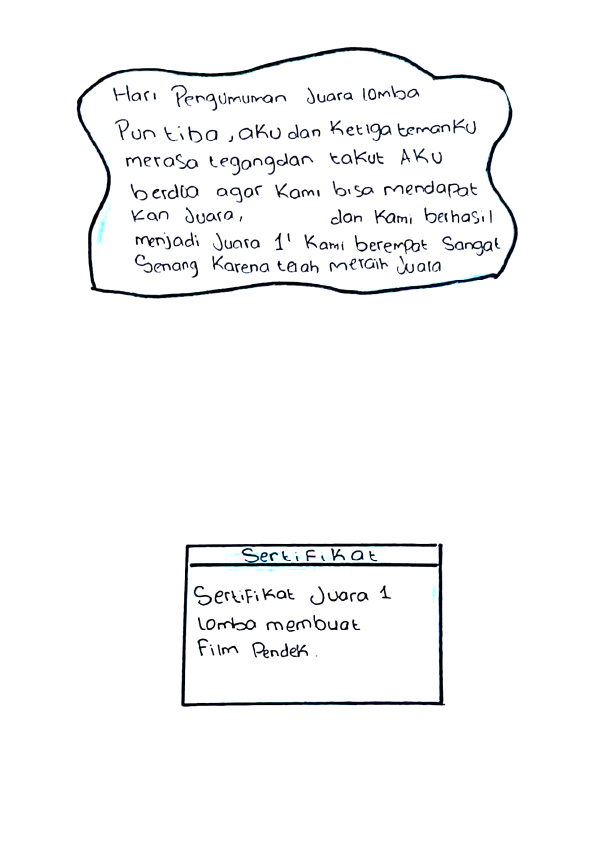 Hari Pengumuman Juara lomba
Pun tiba, aku dan Ketiga temanku
merasa tegang dan takut AKU
berdoa agar Kami bisa mendapat
Kan Juara, dan Kami berhasil
menjadi Juara 1' Kami berempat Sangat
Senang Karena telah meraih Juara
Sertifikat
Sertifikat Juara 1
Lomba membuat
Film Pendek.